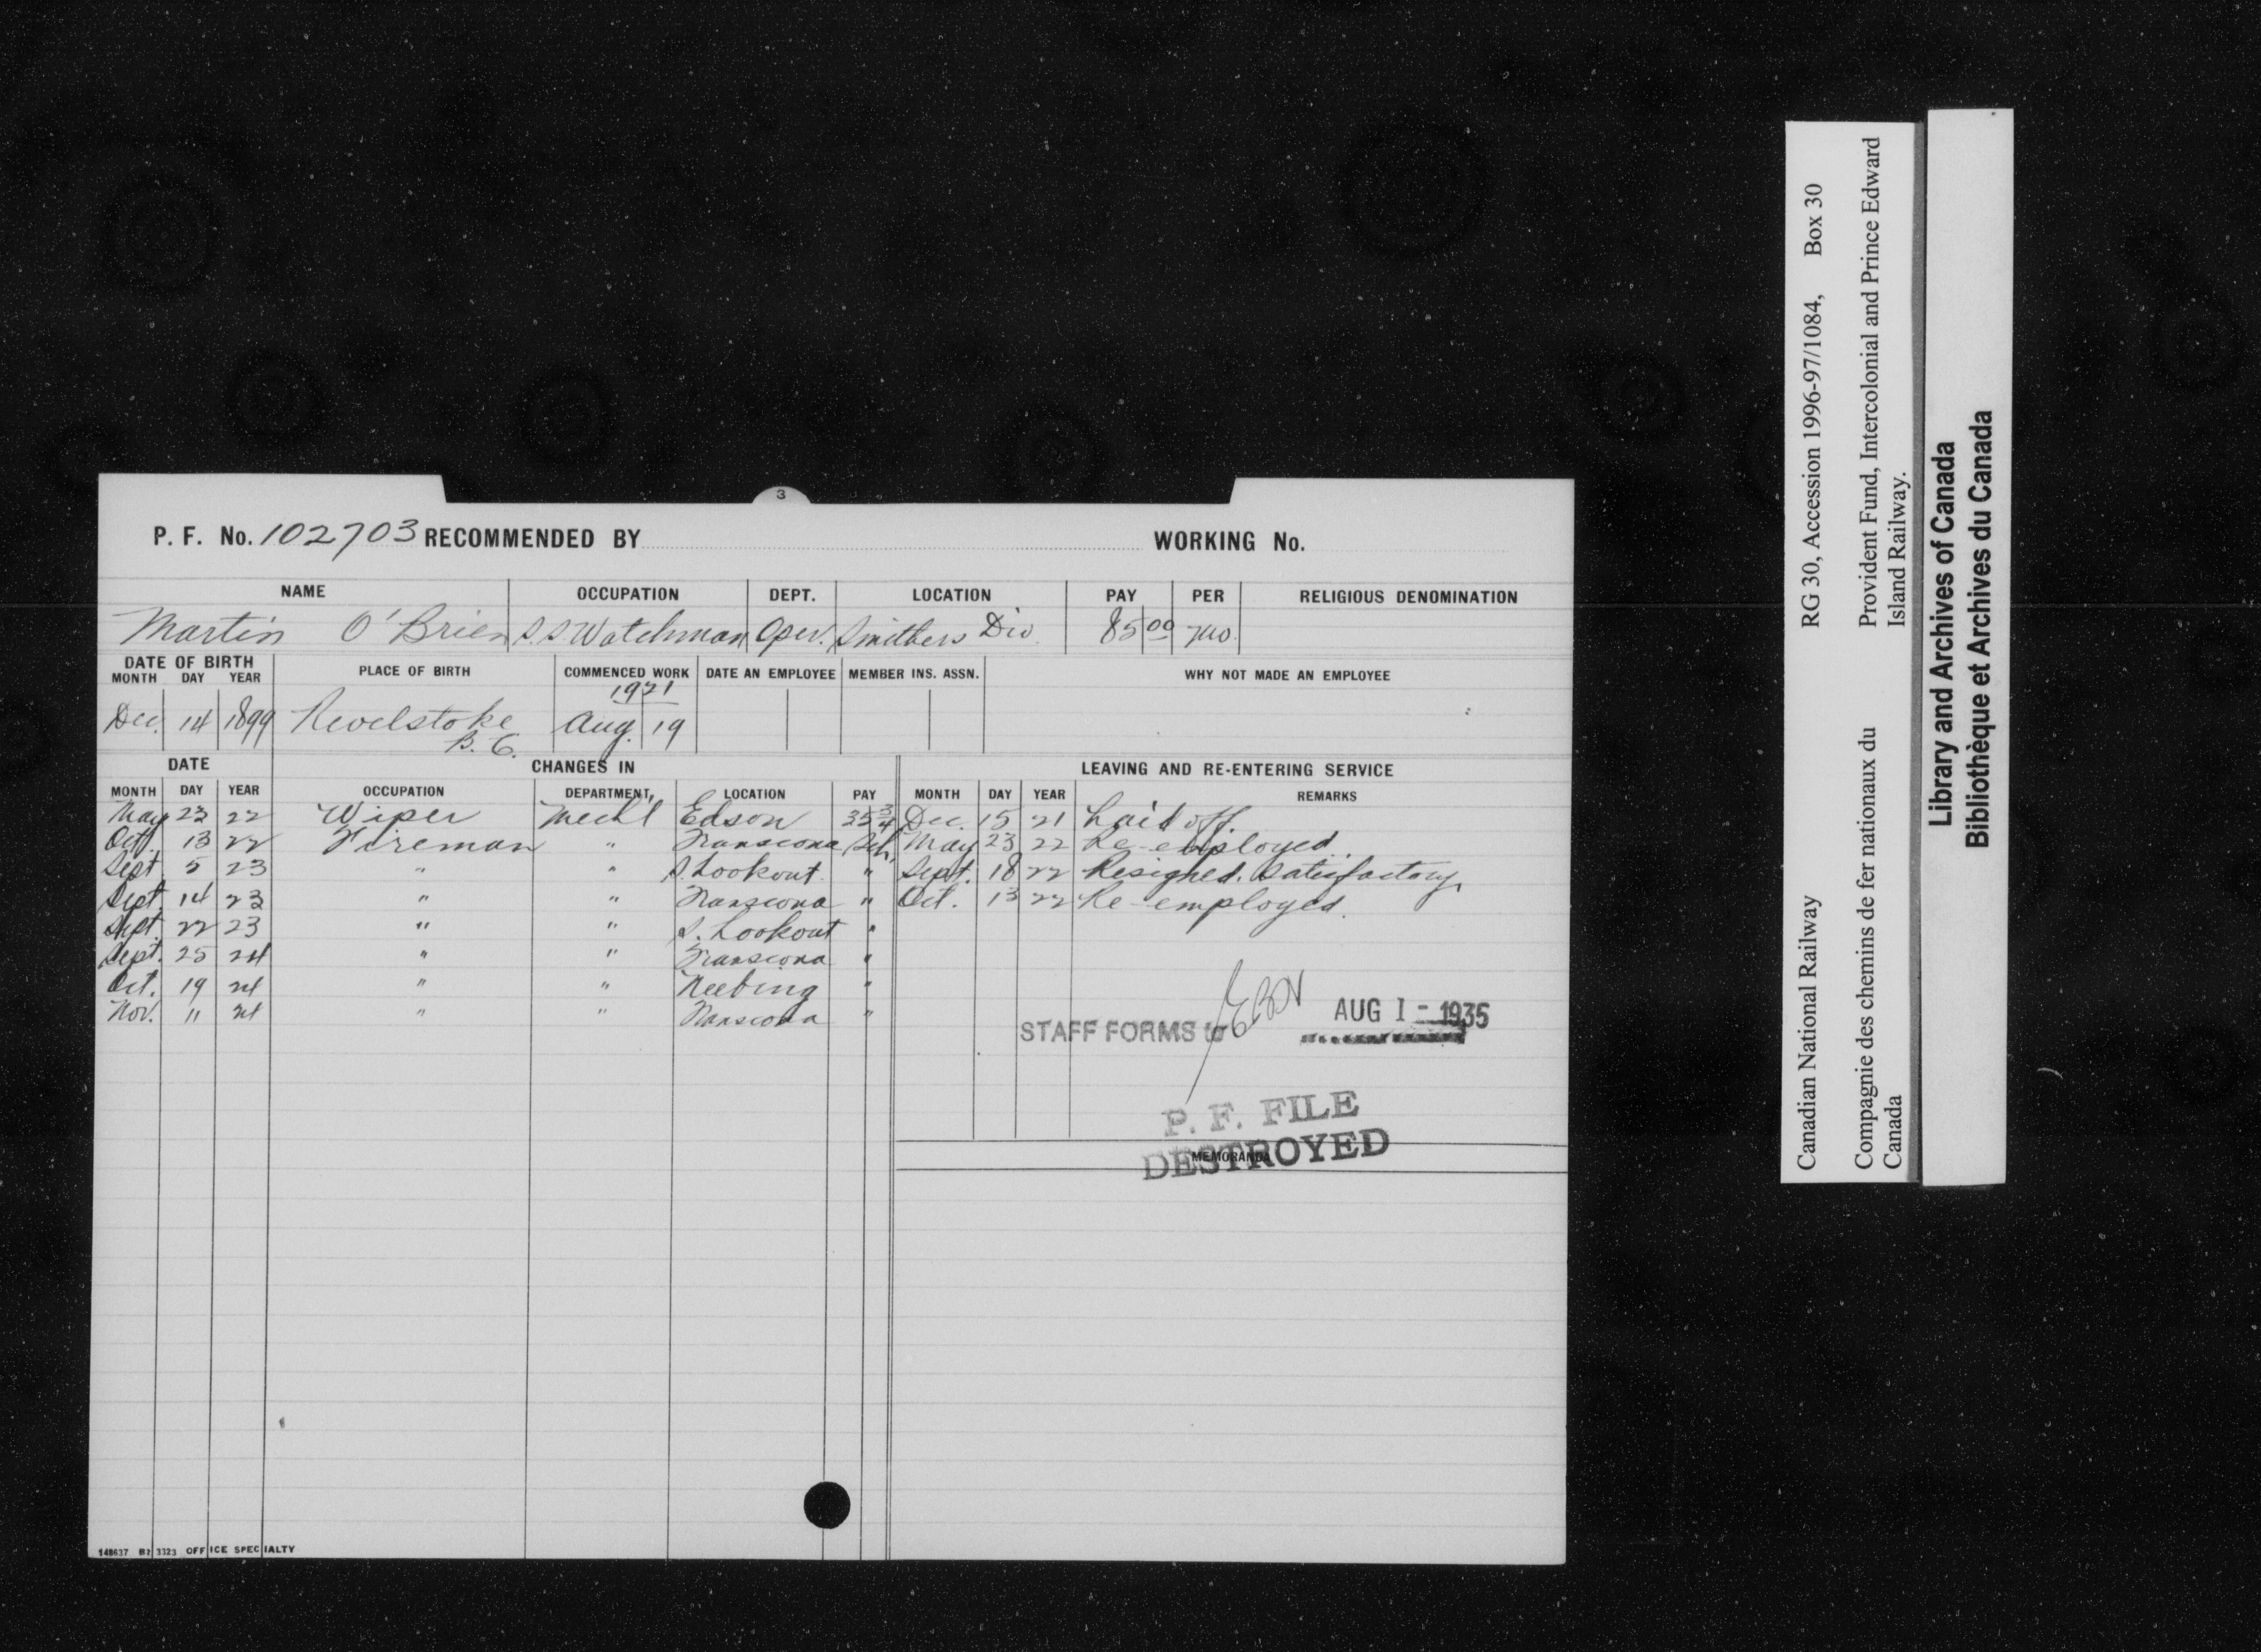 3
P. F. No. 102703 RECOMMENDED BY WORKING No.
NAME OCCUPATION DEPT. LOCATION PAY PER RELIGIOUS DENOMINATION
Martin O'Brien S.S. Watchman Oper. Smithers Div. 85 00 mo.
DATE OF BIRTH PLACE OF BIRTH COMMENCED WORK DATE AN EMPLOYEE MEMBER INS. ASSN. WHY NOT MADE AN EMPLOYEE
MONTH DAY YEAR
1921
Dec. 14 1899 Revelstoke Aug. 19
B.C.
DATE CHANGES IN LEAVING AND RE-ENTERING SERVICE
MONTH DAY YEAR OCCUPATION DEPARTMENT LOCATION PAY MONTH DAY YEAR REMARKS
May 23 22 Wiper Mechl Edson 35 3/4 Dec. 15 21 Laid off.
Oct. 13 22 Fireman " Transcona Sch. May 23 22 Re-employed.
Sept. 5 23 " " S. Lookout " Sept. 18 22 Resigned. Satisfactory
Sept. 14 23 " " Transcona " Oct. 13 22 Re-employed.
Sept. 22 23 " " S. Lookout "
Sept. 25 24 " " Transcona "
Oct. 19 24 " " Neebing "
Nov. 11 24 " " Transcona "
STAFF FORMS to AUG 1 - 1935
P. F. FILE
DESTROYED
MEMORANDA
148637 B2 3323 OFFICE SPECIALTY
Canadian National Railway RG 30, Accession 1996-97/1084, Box 30
Compagnie des chemins de fer nationaux du Provident Fund, Intercolonial and Prince Edward
Canada Island Railway.
Library and Archives of Canada
Bibliothèque et Archives du Canada